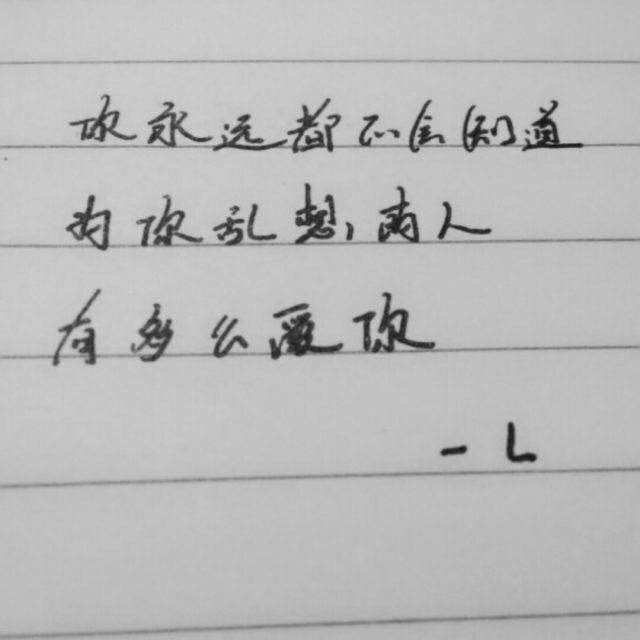 你永远都不会知道
为你乱想,的人
有多么爱你
- L